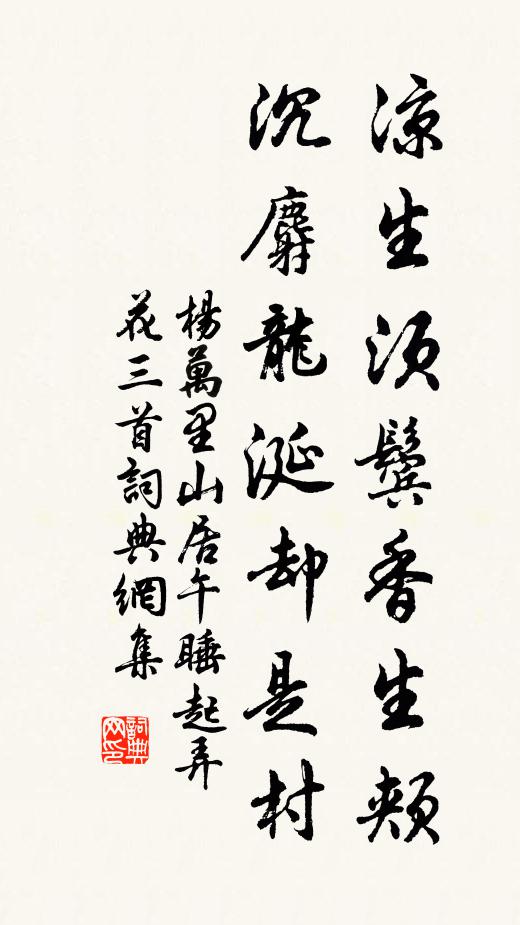 凉生须鬓香生颊
沉麝龍涎却是村
楊萬里山居午睡起弄
花三首詞典網集
詞典
网印